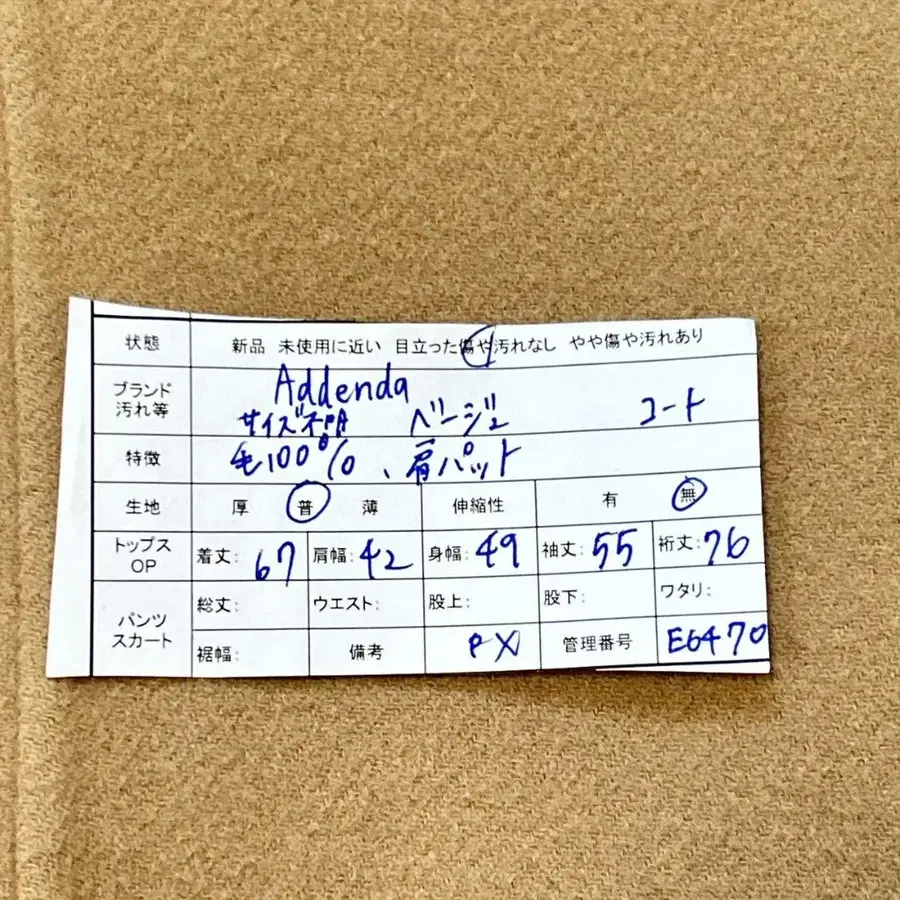 状態 新品 未使用に近い 目立った傷や汚れなし やや傷や汚れあり
ブランド 汚れ等 Addenda
サイズ不明 ベージュ コート
特徴 毛100%、肩パット
生地 厚 普 薄 伸縮性 有 無
トップス OP 着丈: 67 肩幅: 42 身幅: 49 袖丈: 55 裄丈: 76
パンツ スカート 総丈: ウエスト: 股上: 股下: ワタリ:
裾幅: 備考 PX 管理番号 E6470